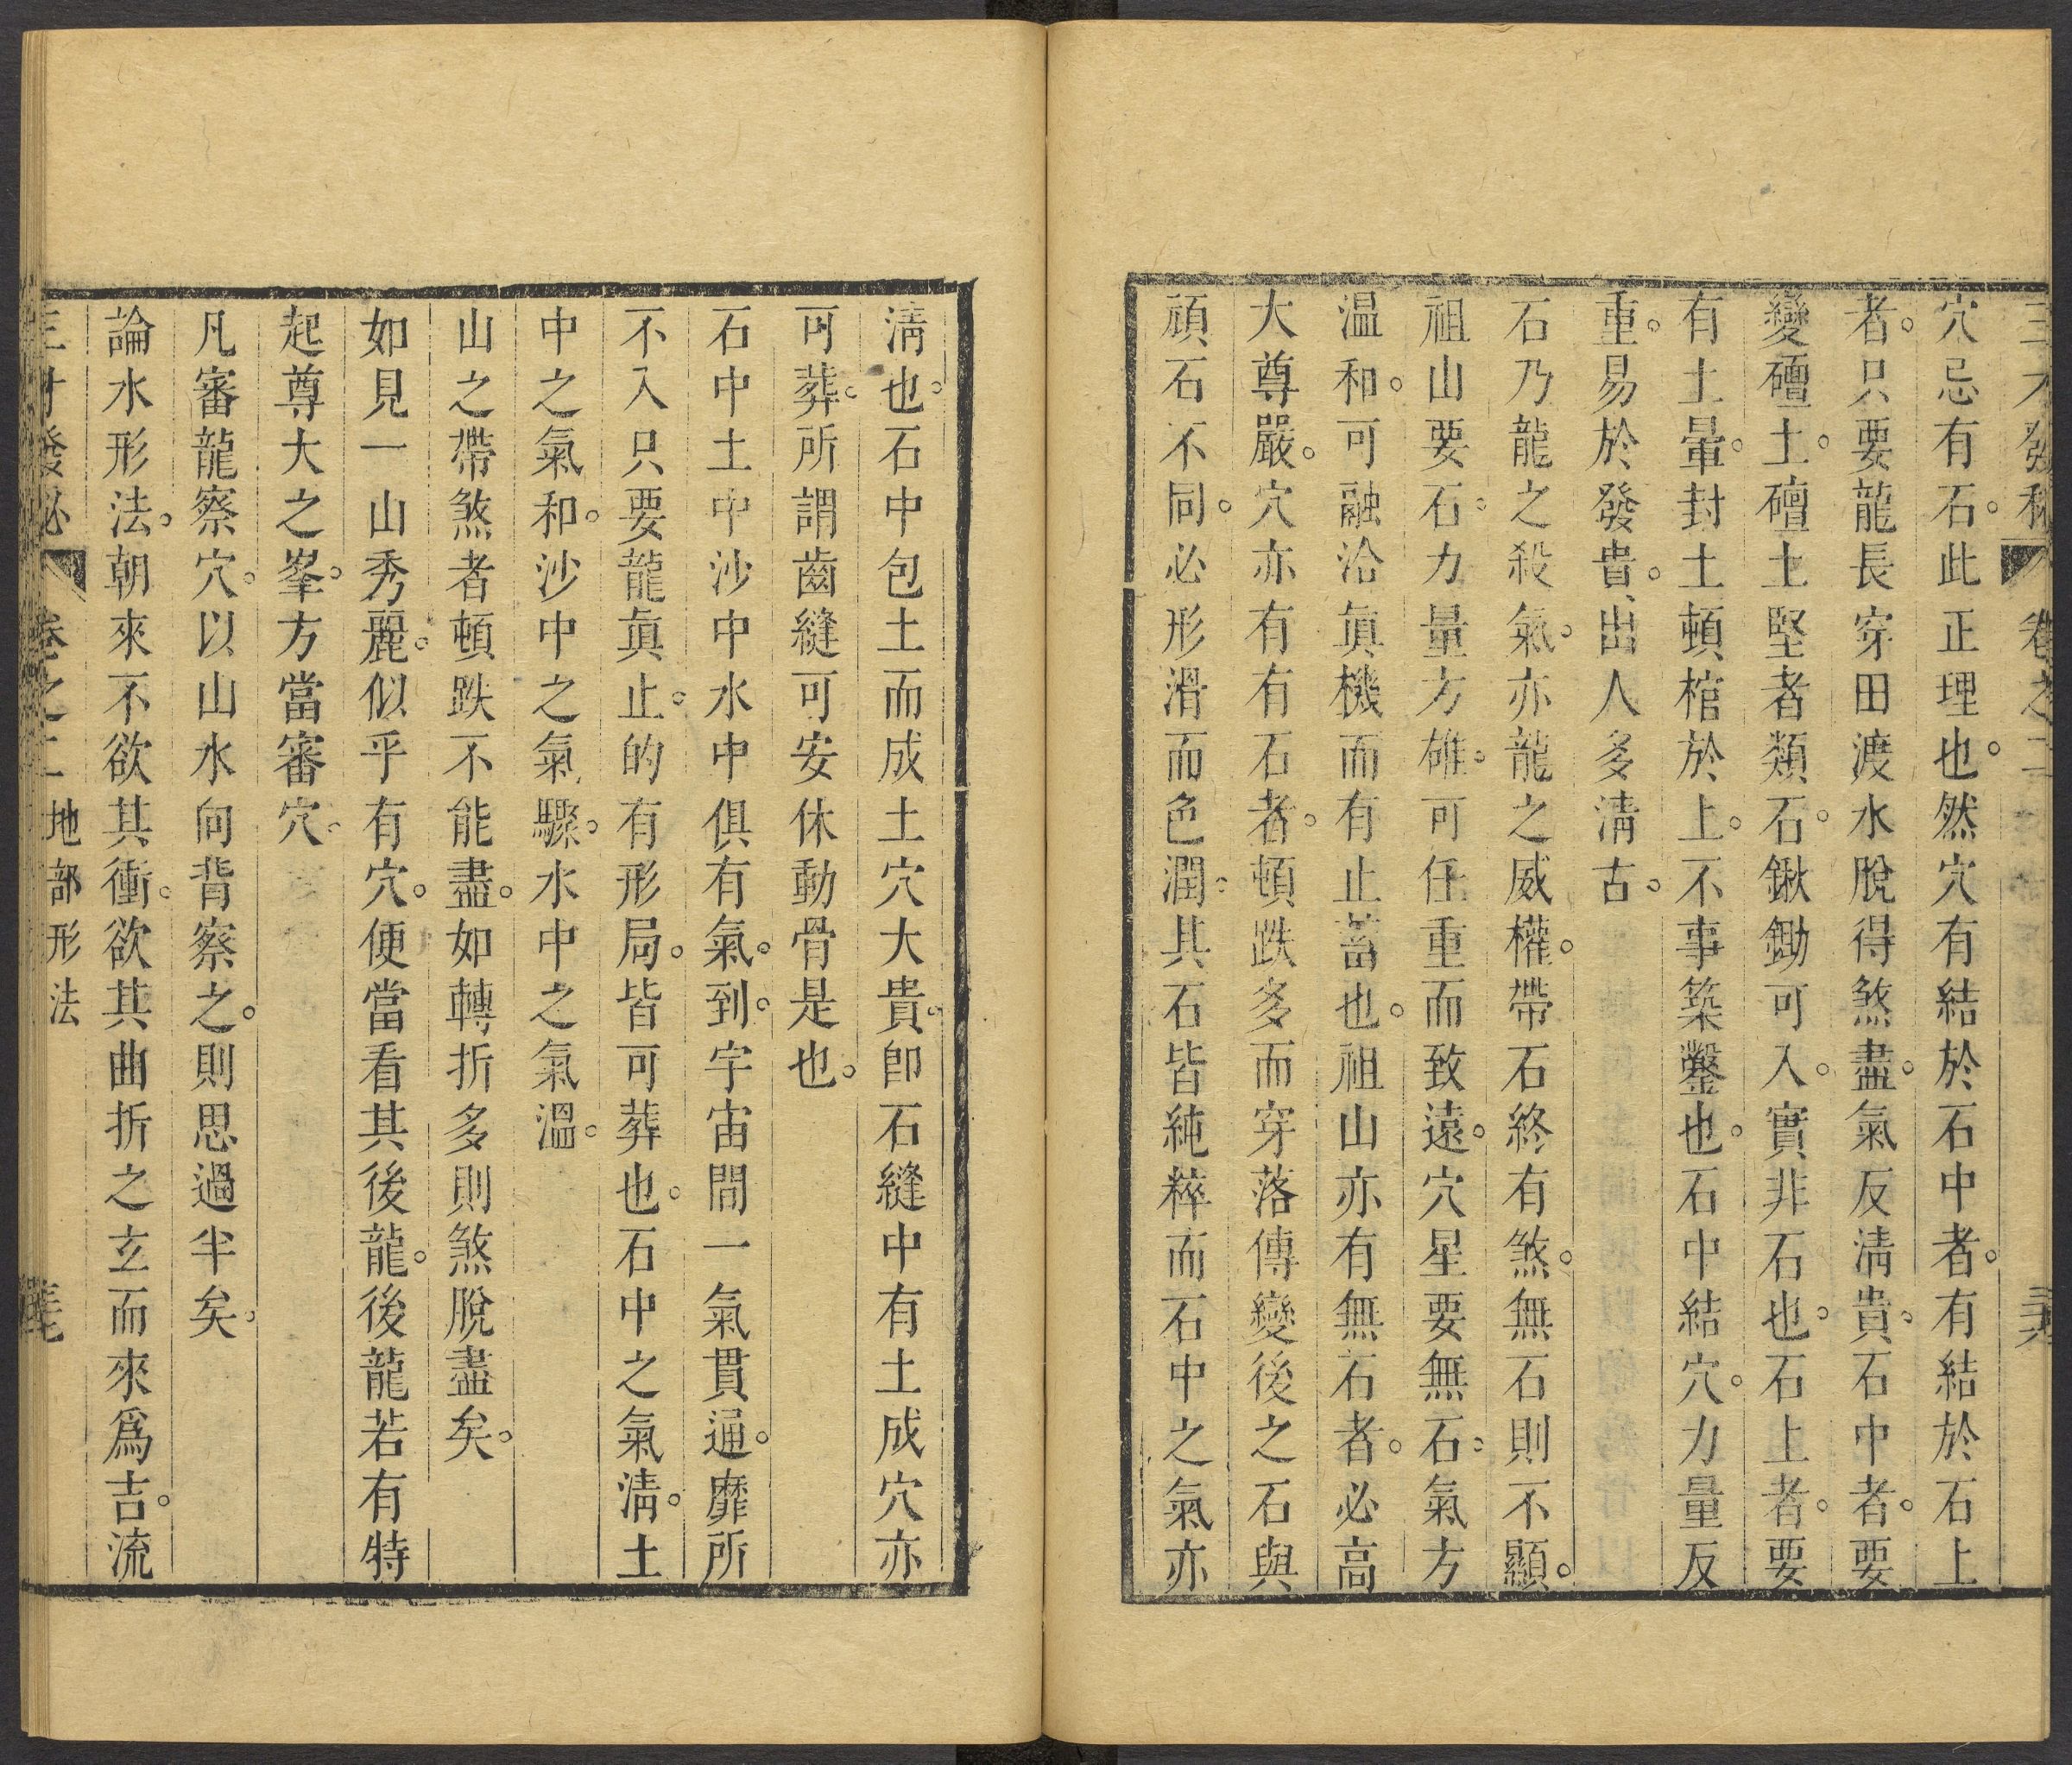 穴忌有石。此正理也。然穴有結於石中者。有結於石上
者。只要龍長穿田渡水脫得煞盡。氣反淸貴。石中者。要
變礓土。礓土堅者類石。鍬鋤可入。實非石也。石上者。要
有土暈。封土頓棺於上。不事築鑿也。石中結穴。力量反
重。易於發貴。出人多淸古。
石乃龍之殺氣。亦龍之威權。帶石終有煞。無石則不顯。
祖山要石。力量方雄。可任重而致遠。穴星要無石。氣方
温和。可融洽眞機而有止蓄也。祖山亦有無石者。必高
大尊嚴。穴亦有有石者。頓跌多而穿落傳變後之石與
頑石不同。必形滑而色潤。其石皆純粹而石中之氣亦
淸也。石中包土而成土穴大貴。卽石縫中有土成穴亦
可葬。所謂齒縫可安休動骨是也。
石中土中沙中水中俱有氣。到。宇宙間一氣貫通。靡所
不入只要龍眞止。的有形局。皆可葬也。石中之氣淸。土
中之氣和。沙中之氣驟。水中之氣溫。
山之帶煞者頓跌不能盡。如轉折多則煞脫盡矣。
如見一山秀麗。似乎有穴。便當看其後龍。後龍若有特
起尊大之峯。方當審穴。
凡審龍察穴。以山水向背察之。則思過半矣。
論水形法。朝來不欲其衝。欲其曲折之玄而來爲吉。流
卷之二 地部形法